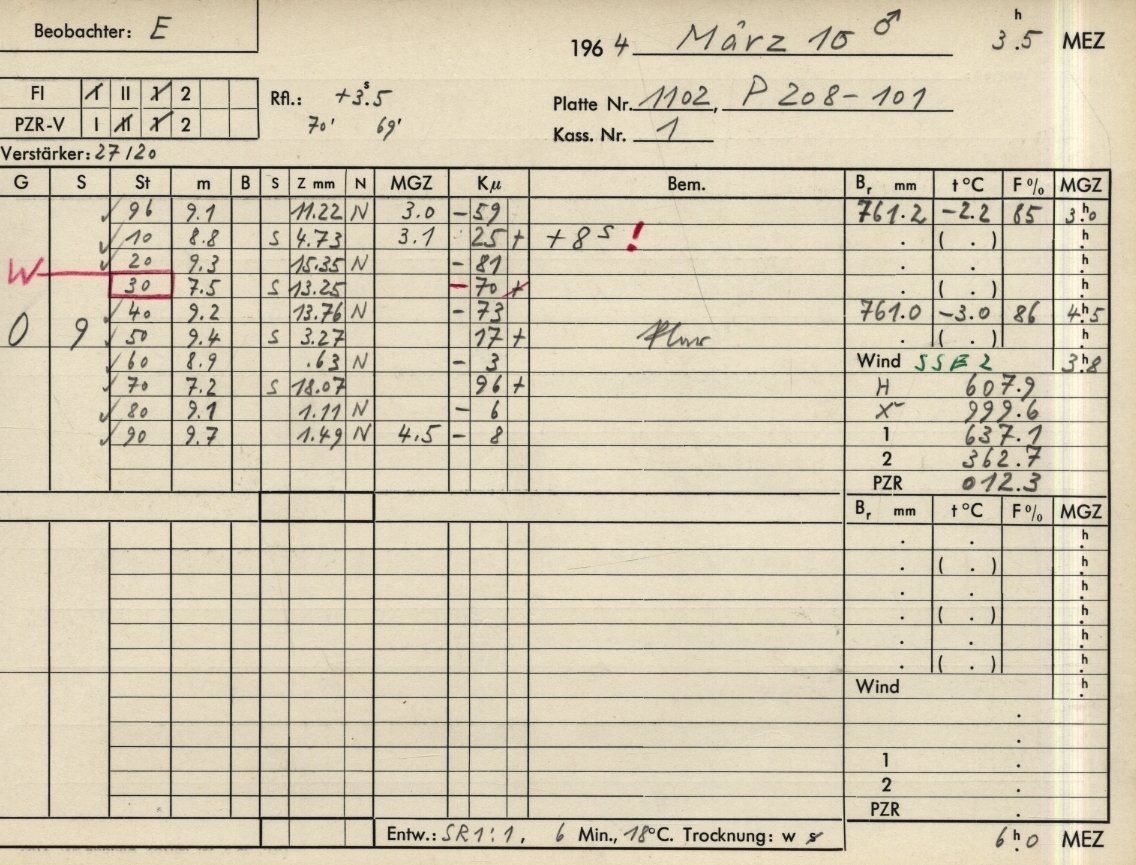 Beobachter: E
1964 März 10 ♂ 3ʰ.5 MEZ
FI I II 1 2
PZR-V I II 1 2
Rfl.: +3ˢ.5
70' 69'
Platte Nr. 1102, P 208-101
Kass. Nr. 1
Verstärker: 27/20
G S St m B S Z mm N MGZ Kμ Bem. Bᵣ mm t °C F % MGZ
✓ 96 9.1 11.22 N 3.0 - 59 761.2 -2.2 85 3ʰ.0
✓ 10 8.8 S 4.73 3.1 25 + +8ˢ ! . ( . ) ʰ.
✓ 20 9.3 15.35 N - 81 . . ʰ.
W 30 7.5 S 13.25 - 70 + . ( . ) ʰ.
✓ 40 9.2 13.76 N - 73 761.0 -3.0 86 4ʰ.5
0 9 ✓ 50 9.4 S 3.27 17 + . ( . ) ʰ.
✓ 60 8.9 .63 N - 3 Wind SSE 2 3ʰ.8
✓ 70 7.2 S 18.07 96 + H 607.9
✓ 80 9.1 1.11 N - 6 X 999.6
✓ 90 9.7 1.49 N 4.5 - 8 1 637.1
2 362.7
PZR 012.3
Bᵣ mm t °C F % MGZ
. . ʰ.
. ( . ) ʰ.
. . ʰ.
. ( . ) ʰ.
. . ʰ.
. ( . ) ʰ.
Wind ʰ.
.
.
1 .
2 .
PZR .
Entw.: SR 1:1, 6 Min., 18°C. Trocknung: w s
6ʰ.0 MEZ